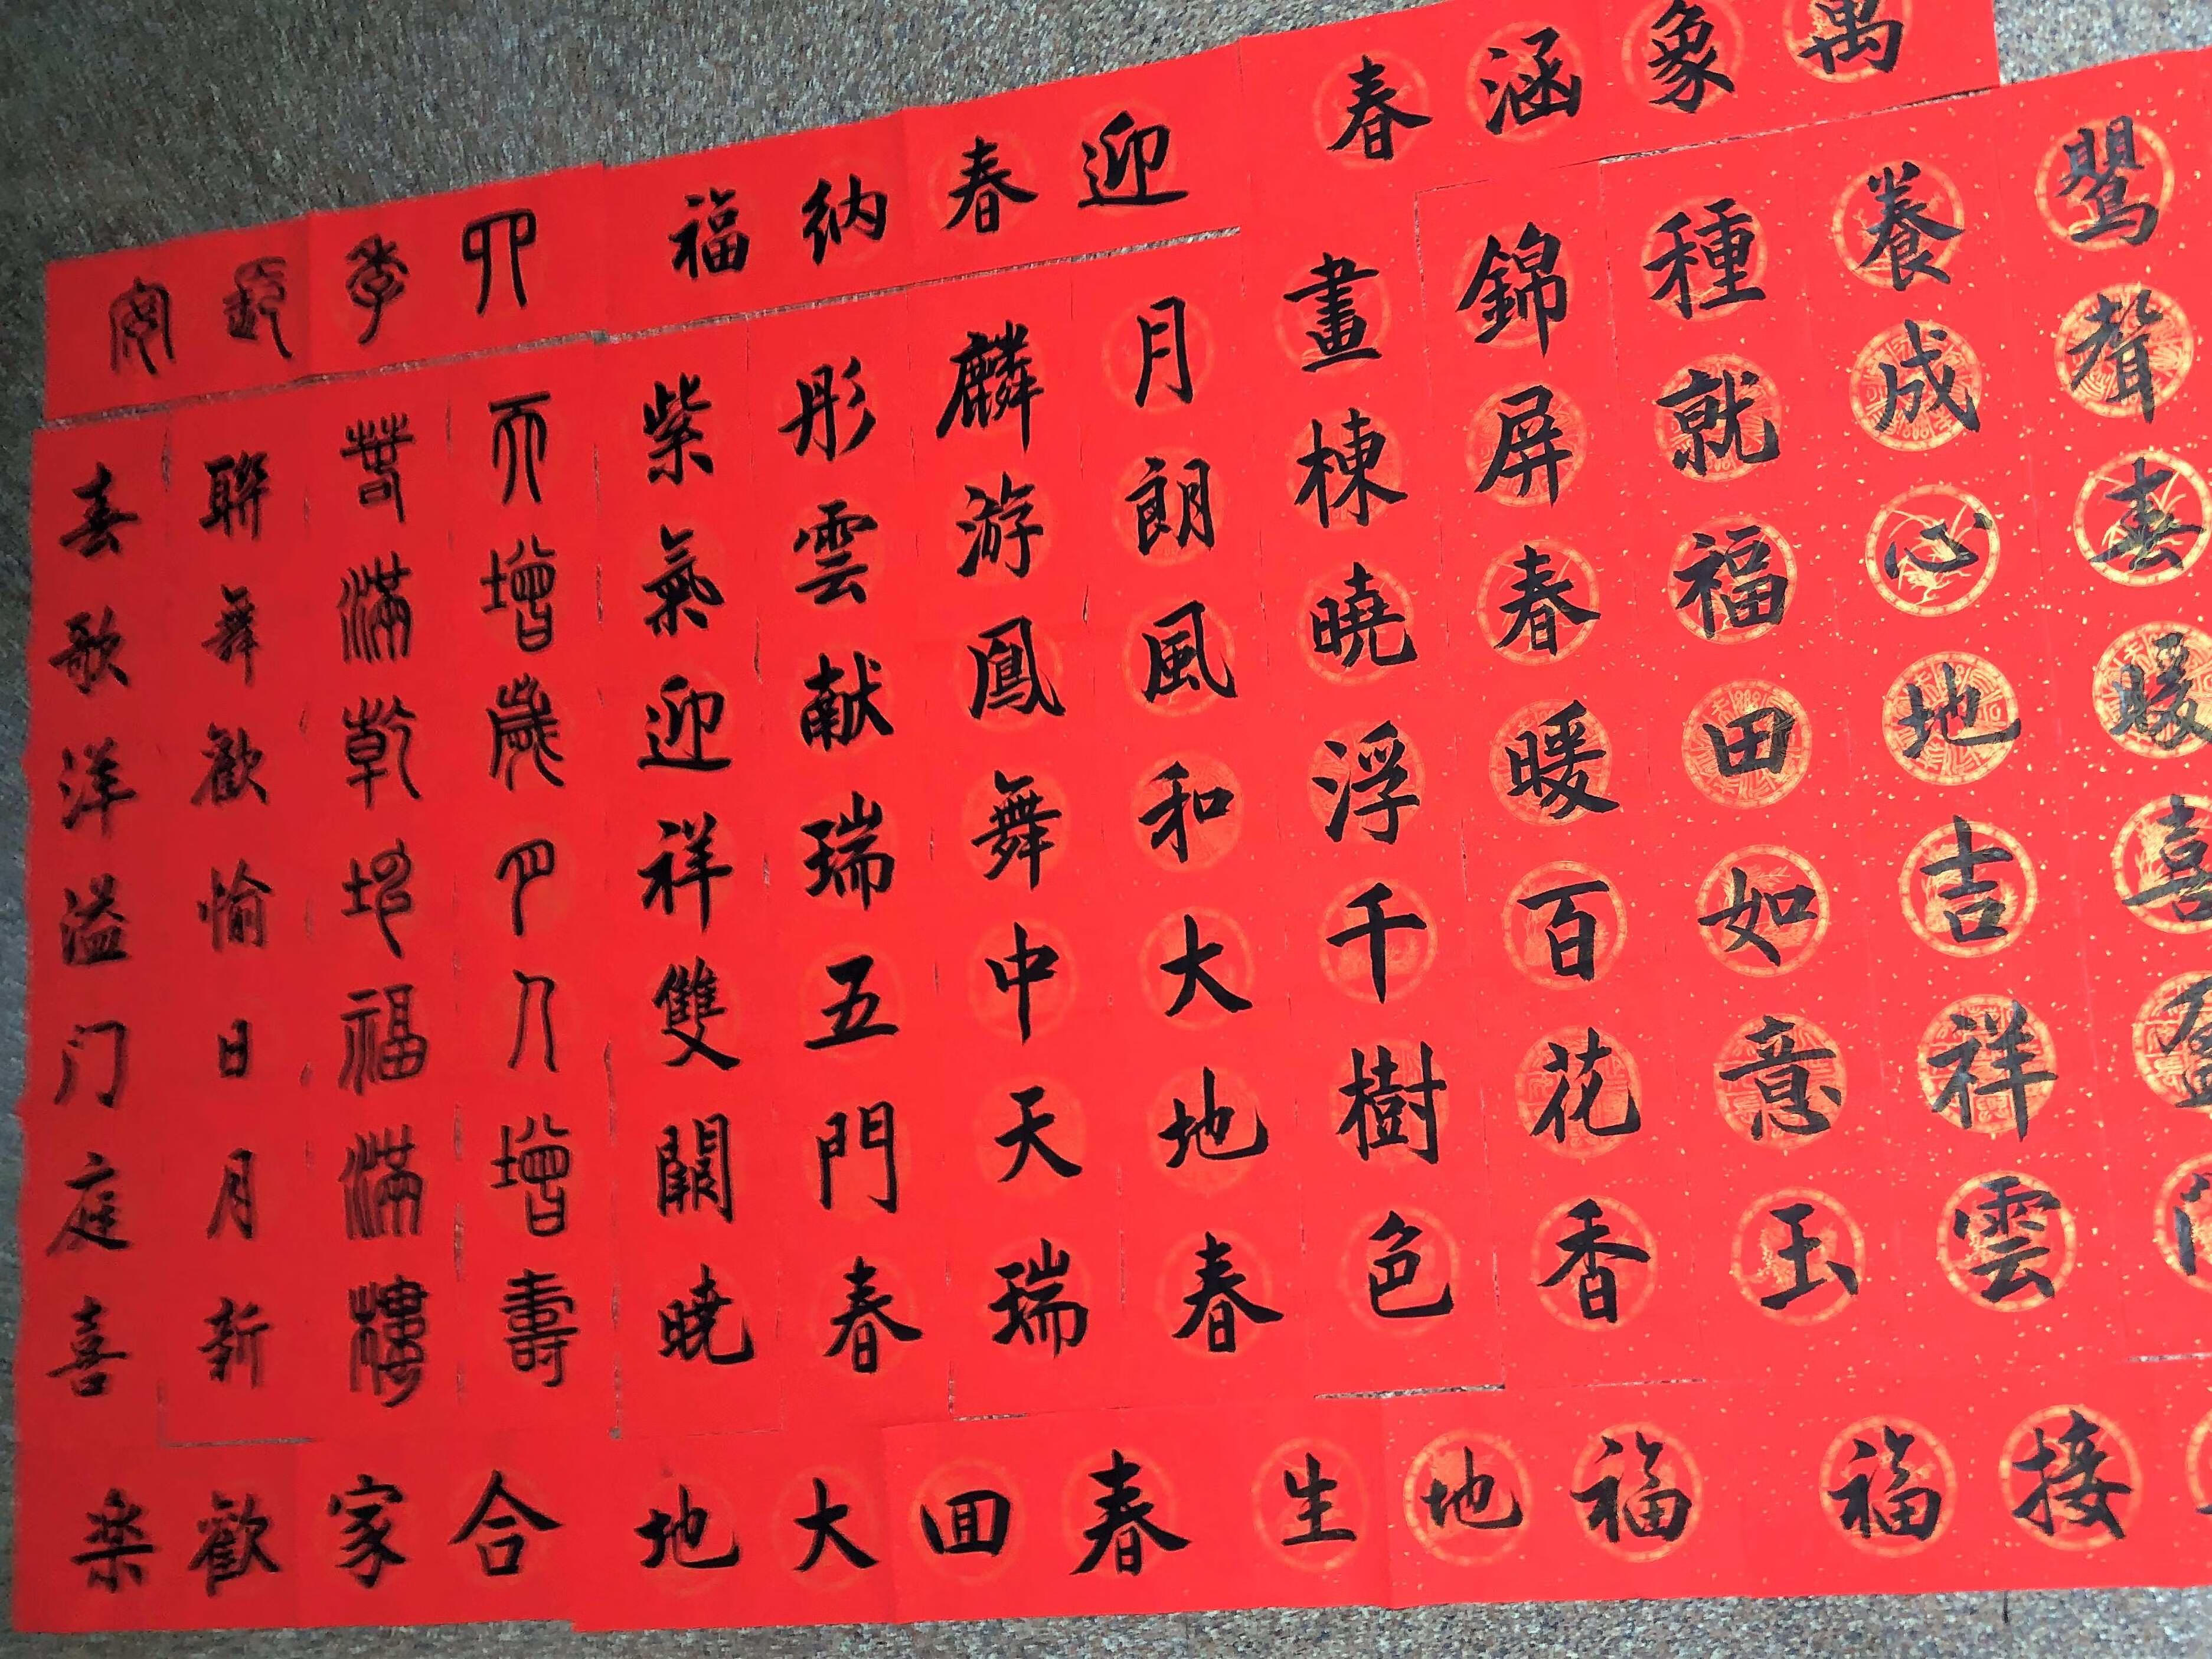 萬象涵春
迎春納福
鸎聲春暖喜盈
養成心地吉祥雲
種就福田如意玉
錦屏春暖百花香
畫棟曉浮千樹色
月朗風和大地春
麟游鳳舞中天瑞
彤雲献瑞五門春
紫氣迎祥雙闕曉
四季 安
天增歲月人增壽
春滿乾坤福滿樓
聯舞歡愉日月新
春歌洋溢门庭喜
接福
福地生
春囬大地
合家歡楽